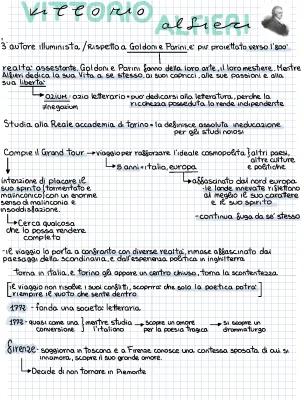 VITTORIO ALFIERI
vittorio
alfieri
3° autore illuminista / Rispetto a Goldoni e Parini, e' piu' proiettato verso l'800'
realta' assestante. Goldoni e Parini fanno della loro arte, il loro mestiere. Mentre
Alfieri dedica la sua Vita a se stesso, ai suoi capricci, alle sue passioni e alla
sua libertà:
OZIUM: ozio letterario • puo' dedicarsi alla letteratura, perche la
negazion ricchezza posseduta lo rende indipendente
Studia alla Reale accademia di torino • la definisce assoluta ineducazione
per gli studi noiosi
Compie il Grand tour → viaggio per rafforzare l'ideale cosmopolita altri paesi,
altre culture
e politiche
8 anni • italia, europa
intenzione di placare il
suo spirito tormentato e
malinconico con un enorme
senso di malinconia e
insoddisfazione.
affascinato dal nord europa
• le lande innevate riflettono
al meglio il suo carattere
e il suo spirito
• continua fuga da se' stesso
Cerca qualcosa
che lo possa rendere
completo
• il viaggio lo porta a confronto con diverse realta', rimase affascinato dai
paesaggi della scandinavia, e dall'esperienza politica in inghilterra
torna in italia, e torino gli appare un centro chiuso, torna la scontentezza
il viaggio non risolve i suoi conflitti, scoprira' che solo la poetica potra'
riempire il vuoto che sente dentro
1772 - fonda una societa' letteraria
1775 - quasi come una conversione mentre studia l'italiano → scopre un amore per la poesia tragica → si scopre un drammaturgo
firenze - soggiorna in toscana e a Firenze conosce una contessa sposata di cui si
innamora, scopre il suo grande amore.
Decide di non tornare in Piemonte